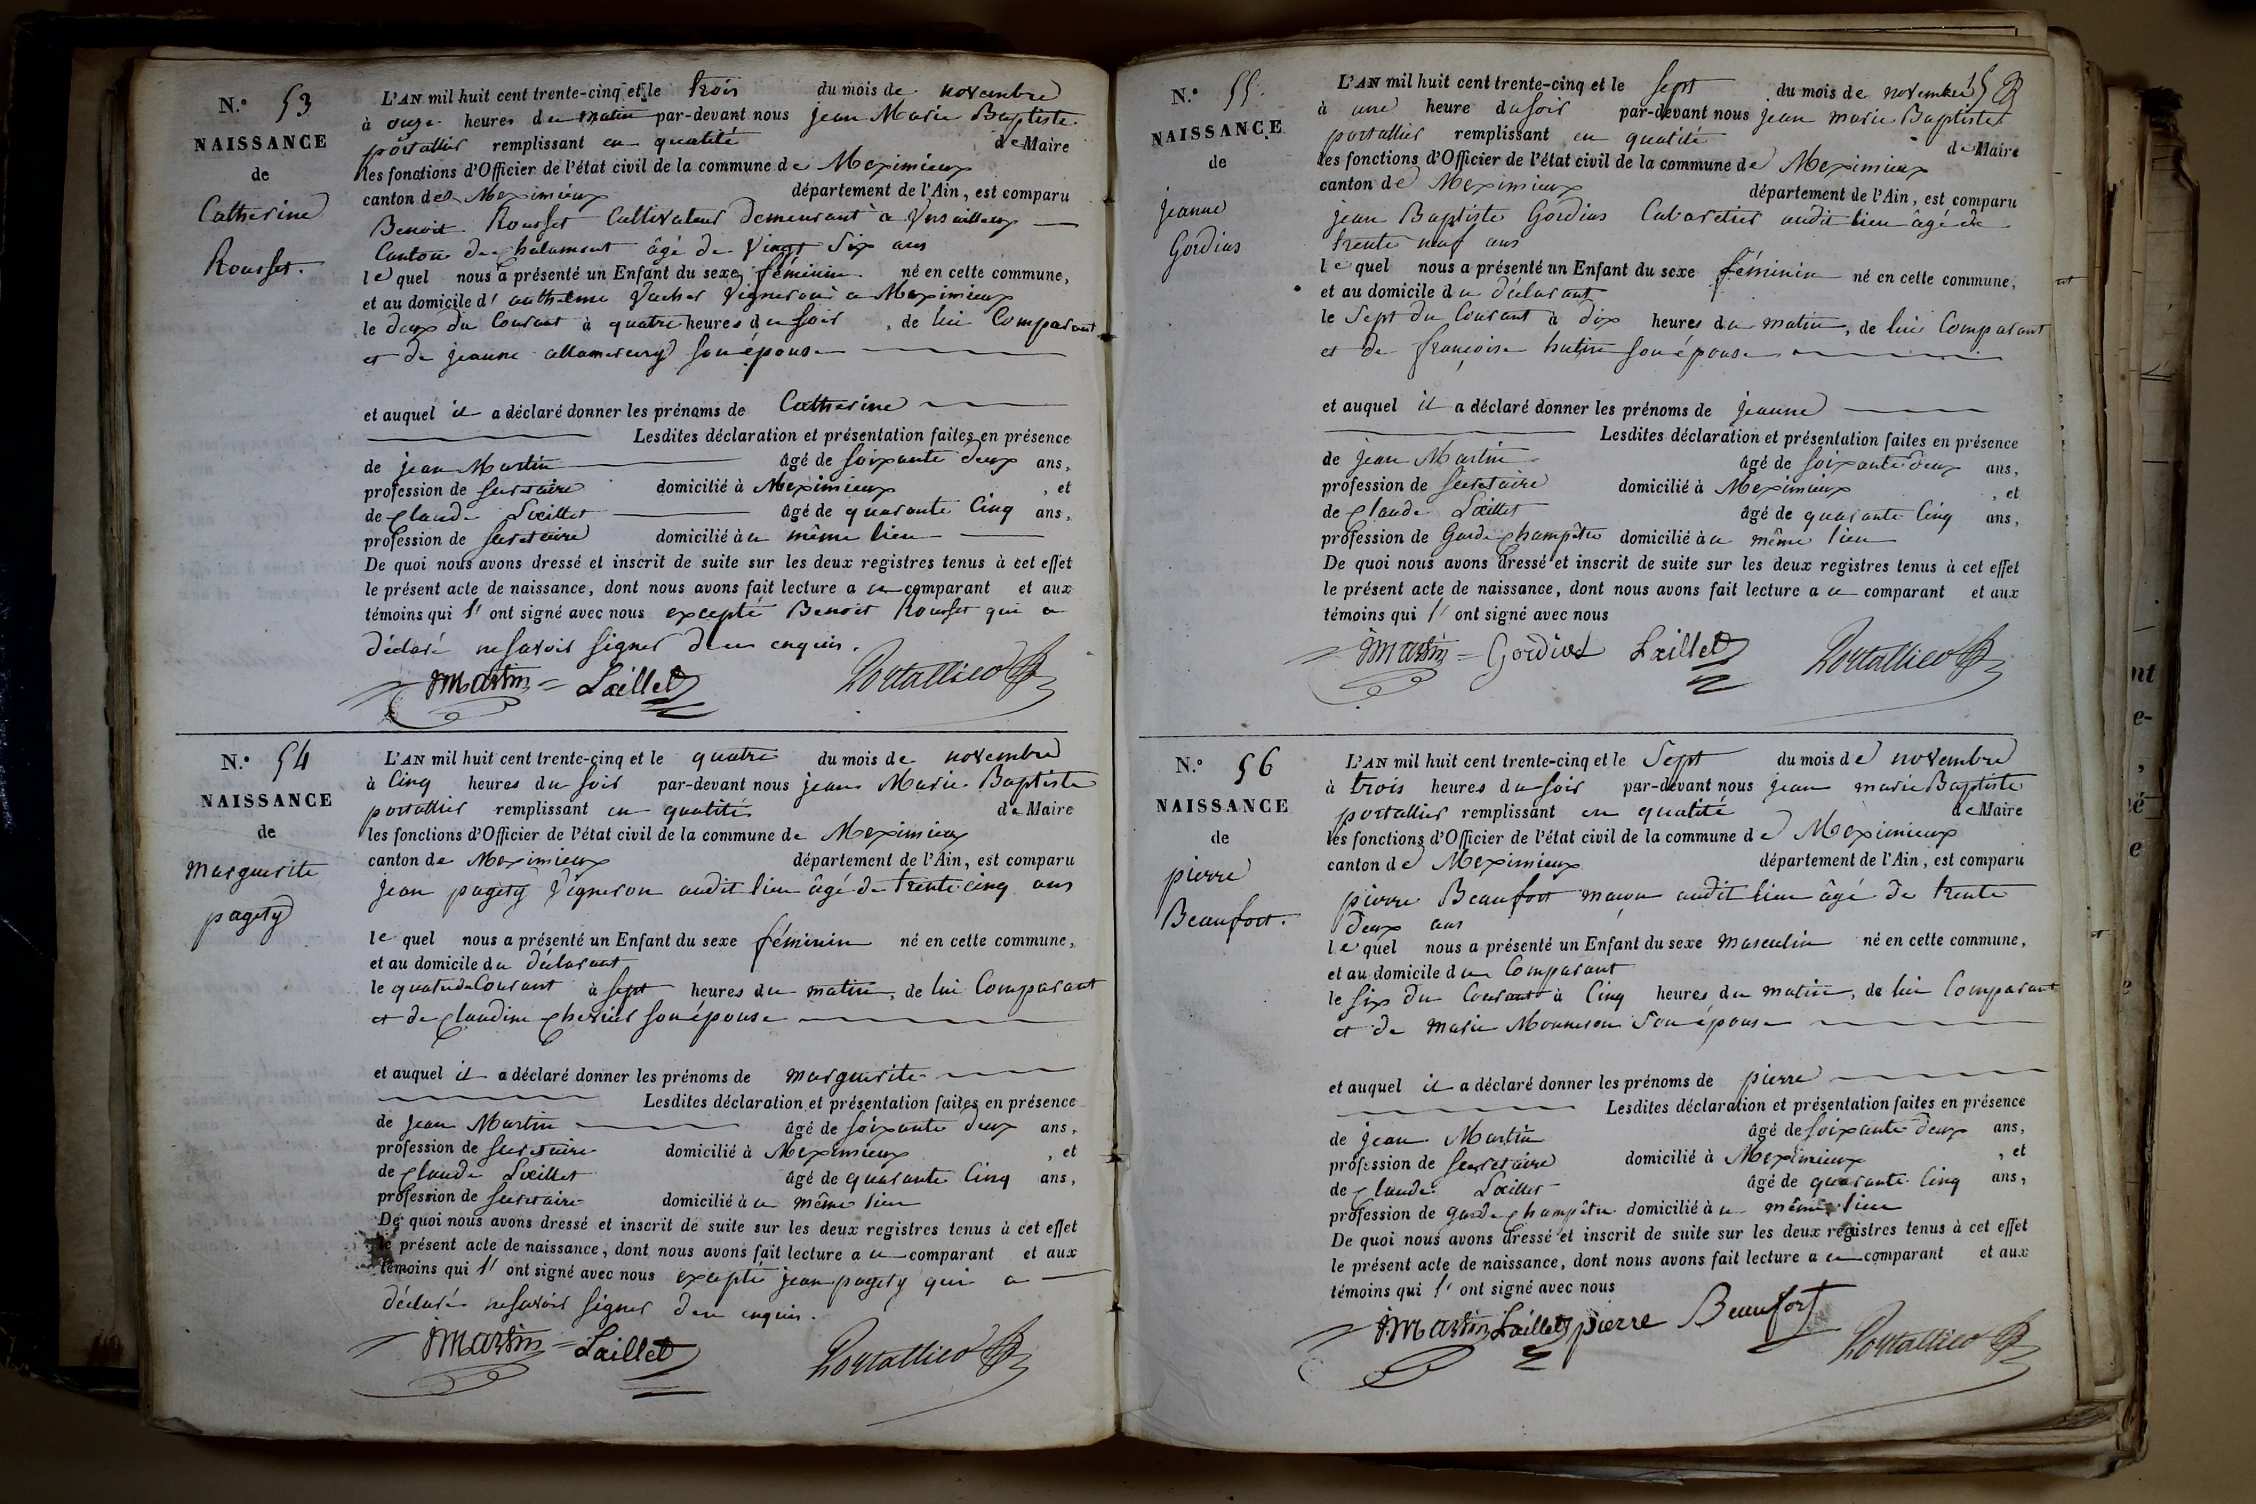 N.° 53
NAISSANCE
de
Catherine
Rousset.
L'AN mil huit cent trente-cinq et le trois du mois de novembre
à onze heures du matin par-devant nous jean Marie Baptiste
portallier remplissant en qualité de Maire
les fonctions d'Officier de l'état civil de la commune de Meximieux
canton de Meximieux département de l'Ain, est comparu
Benoit Rousset Cultivateur demeurant à Versailleux
Canton de chalamont âgé de Vingt Six ans
le quel nous a présenté un Enfant du sexe féminin né en cette commune,
et au domicile d' anthelme Vacher Vigneron a Meximieux
le deux du Courant à quatre heures du soir, de lui Comparant
et de jeanne allamercery son épouse
et auquel il a déclaré donner les prénoms de Catherine
Lesdites déclaration et présentation faites en présence
de jean Martin âgé de soixante deux ans,
profession de secretaire domicilié à Meximieux, et
de claude Loeillet âgé de quarante Cinq ans,
profession de secretaire domicilié à u même lieu
De quoi nous avons dressé et inscrit de suite sur les deux registres tenus à cet effet
le présent acte de naissance, dont nous avons fait lecture a u comparant et aux
témoins qui l' ont signé avec nous excepté Benoit Rousset qui a
déclaré ne savoir signer de ce enquis.
jmartin = Lœillet Portallier
N.° 54
NAISSANCE
de
marguerite
pagety
L'AN mil huit cent trente-cinq et le quatre du mois de novembre
à Cinq heures du soir par-devant nous jean Marie Baptiste
portallier remplissant en qualité de Maire
les fonctions d'Officier de l'état civil de la commune de Meximieux
canton de Meximieux département de l'Ain, est comparu
jean pagety Vigneron audit lieu âgé de trente cinq ans
le quel nous a présenté un Enfant du sexe féminin né en cette commune,
et au domicile du déclarant
le quatre du Courant à sept heures du matin, de lui Comparant
et de claudine cherier son épouse
et auquel il a déclaré donner les prénoms de marguerite
Lesdites déclaration et présentation faites en présence
de jean Martin âgé de soixante deux ans,
profession de secretaire domicilié à Meximieux, et
de claude Loeillet âgé de quarante Cinq ans,
profession de secretaire domicilié à u même lieu
De quoi nous avons dressé et inscrit de suite sur les deux registres tenus à cet effet
le présent acte de naissance, dont nous avons fait lecture a u comparant et aux
témoins qui l' ont signé avec nous excepté jean pagety qui a
déclaré ne savoir signer de ce enquis.
jmartin = Lœillet Portallier
N.° 55.
NAISSANCE
de
jeanne
Gordias
L'AN mil huit cent trente-cinq et le sept du mois de novembre
à une heure du soir par-devant nous jean marie Baptiste
portallier remplissant en qualité de Maire
les fonctions d'Officier de l'état civil de la commune de Meximieux
canton de Meximieux département de l'Ain, est comparu
jean Baptiste Gordias Cabaretier audit lieu âgé de
trente neuf ans
le quel nous a présenté un Enfant du sexe féminin né en cette commune,
et au domicile du déclarant
le Sept du Courant à dix heures du matin, de lui Comparant
et de françoise hutin son épouse
et auquel il a déclaré donner les prénoms de jeanne
Lesdites déclaration et présentation faites en présence
de jean Martin âgé de soixante deux ans,
profession de secretaire domicilié à Meximieux, et
de claude Loeillet âgé de quarante Cinq ans,
profession de Garde champêtre domicilié à u même lieu
De quoi nous avons dressé et inscrit de suite sur les deux registres tenus à cet effet
le présent acte de naissance, dont nous avons fait lecture a u comparant et aux
témoins qui l' ont signé avec nous
jmartin = Gordias Lœillet Portallier
N.° 56
NAISSANCE
de
pierre
Beaufort.
L'AN mil huit cent trente-cinq et le Sept du mois de novembre
à trois heures du soir par-devant nous jean marie Baptiste
portallier remplissant en qualité de Maire
les fonctions d'Officier de l'état civil de la commune de Meximieux
canton de Meximieux département de l'Ain, est comparu
pierre Beaufort maçon audit lieu âgé de trente
deux ans
le quel nous a présenté un Enfant du sexe masculin né en cette commune,
et au domicile du Comparant
le six du Courant à Cinq heures du matin, de lui Comparant
et de marie Monneron son épouse
et auquel il a déclaré donner les prénoms de pierre
Lesdites déclaration et présentation faites en présence
de jean Martin âgé de soixante deux ans,
profession de secretaire domicilié à Meximieux, et
de claude Loeillet âgé de quarante Cinq ans,
profession de garde champêtre domicilié à u même lieu
De quoi nous avons dressé et inscrit de suite sur les deux registres tenus à cet effet
le présent acte de naissance, dont nous avons fait lecture a u comparant et aux
témoins qui l' ont signé avec nous
jmartin Lœillet pierre Beaufort Portallier